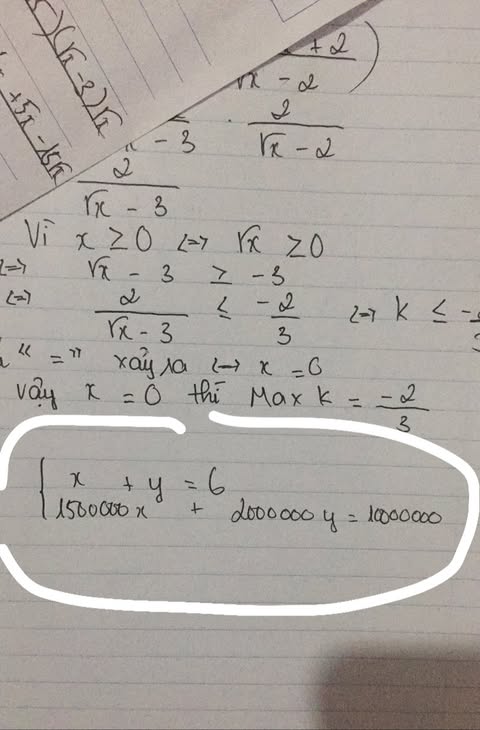 x + 2
√x - 2
)(√x - 3)√x
+ 5x - 15√x
x - 3 . 2/(√x - 2)
2/(√x - 3)
Vì x ≥ 0 <=> √x ≥ 0
<=> √x - 3 ≥ -3
<=> 2/(√x - 3) ≤ -2/3 <=> K ≤ -
"=" xảy ra <=> x = 0
vậy x = 0 thì Max K = -2/3
{ x + y = 6
1500000x + 2000000y = 10000000